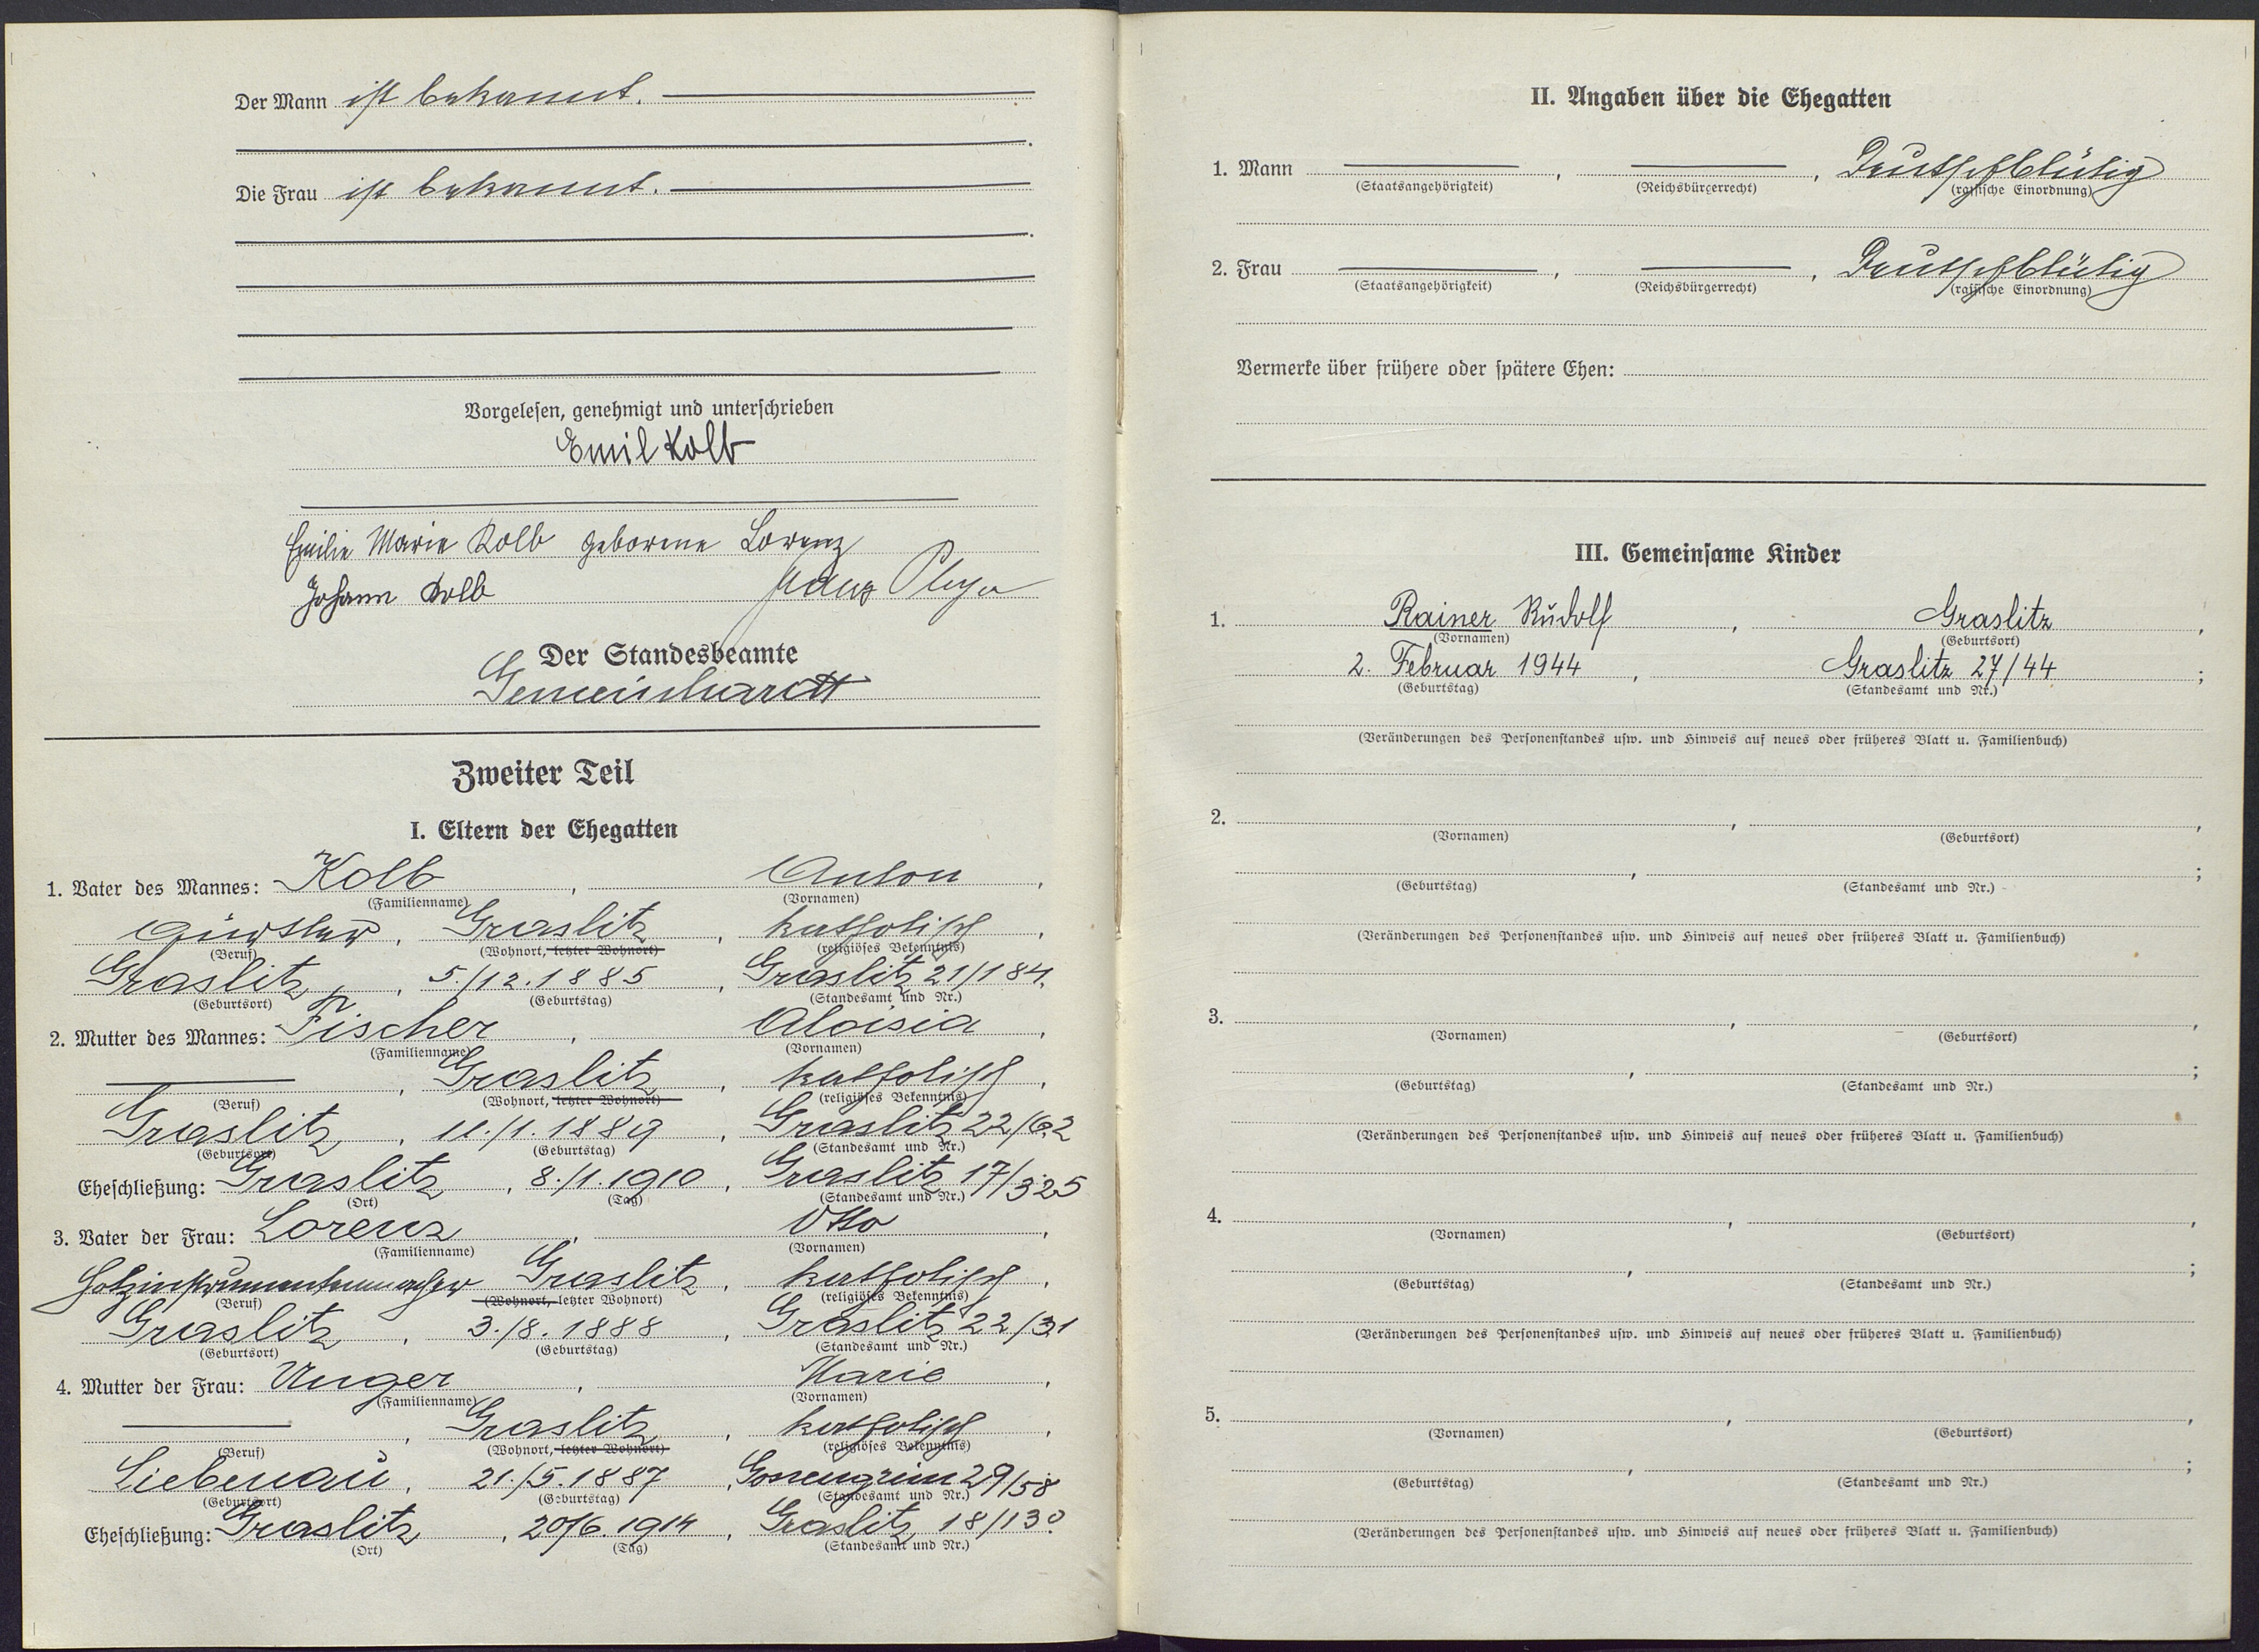 Der Mann ist bekannt.
Die Frau ist bekannt.
Vorgelesen, genehmigt und unterschrieben
Emil Kolb
Emilie Marie Kolb geborene Lorenz
Johann Kolb
Der Standesbeamte
Gemeinhardt
Zweiter Teil
I. Eltern der Ehegatten
1. Vater des Mannes: Kolb, Anton,
(Familienname) (Vornamen)
Gürtler, Graslitz, katholisch,
(Beruf) (Wohnort, letzter Wohnort) (religiöses Bekenntnis)
Graslitz, 5./12.1885, Graslitz 21/184.
(Geburtsort) (Geburtstag) (Standesamt und Nr.)
2. Mutter des Mannes: Fischer, Aloisia,
(Familienname) (Vornamen)
Graslitz, katholisch,
(Beruf) (Wohnort, letzter Wohnort) (religiöses Bekenntnis)
Graslitz, 11./1.1889, Graslitz 22/62
(Geburtsort) (Geburtstag) (Standesamt und Nr.)
Eheschließung: Graslitz, 8./1.1910, Graslitz 17/325
(Ort) (Tag) (Standesamt und Nr.)
3. Vater der Frau: Lorenz, Otto,
(Familienname) (Vornamen)
Holzinstrumentenmacher Graslitz, katholisch,
(Beruf) (Wohnort, letzter Wohnort) (religiöses Bekenntnis)
Graslitz, 3./8.1888, Graslitz 22/31
(Geburtsort) (Geburtstag) (Standesamt und Nr.)
4. Mutter der Frau: Unger, Marie,
(Familienname) (Vornamen)
Graslitz, katholisch,
(Beruf) (Wohnort, letzter Wohnort) (religiöses Bekenntnis)
Liebenau, 21./5.1887, Gossengrün 29/58
(Geburtsort) (Geburtstag) (Standesamt und Nr.)
Eheschließung: Graslitz, 20/6.1914, Graslitz 18/130
(Ort) (Tag) (Standesamt und Nr.)
II. Angaben über die Ehegatten
1. Mann , , Deutschblütig
(Staatsangehörigkeit) (Reichsbürgerrecht) (rassische Einordnung)
2. Frau , , Deutschblütig
(Staatsangehörigkeit) (Reichsbürgerrecht) (rassische Einordnung)
Vermerke über frühere oder spätere Ehen:
III. Gemeinsame Kinder
1. Rainer Rudolf, Graslitz,
(Vornamen) (Geburtsort)
2. Februar 1944, Graslitz 27/44;
(Geburtstag) (Standesamt und Nr.)
(Veränderungen des Personenstandes usw. und Hinweis auf neues oder früheres Blatt u. Familienbuch)
2. , ,
(Vornamen) (Geburtsort)
, ;
(Geburtstag) (Standesamt und Nr.)
(Veränderungen des Personenstandes usw. und Hinweis auf neues oder früheres Blatt u. Familienbuch)
3. , ,
(Vornamen) (Geburtsort)
, ;
(Geburtstag) (Standesamt und Nr.)
(Veränderungen des Personenstandes usw. und Hinweis auf neues oder früheres Blatt u. Familienbuch)
4. , ,
(Vornamen) (Geburtsort)
, ;
(Geburtstag) (Standesamt und Nr.)
(Veränderungen des Personenstandes usw. und Hinweis auf neues oder früheres Blatt u. Familienbuch)
5. , ,
(Vornamen) (Geburtsort)
, ;
(Geburtstag) (Standesamt und Nr.)
(Veränderungen des Personenstandes usw. und Hinweis auf neues oder früheres Blatt u. Familienbuch)